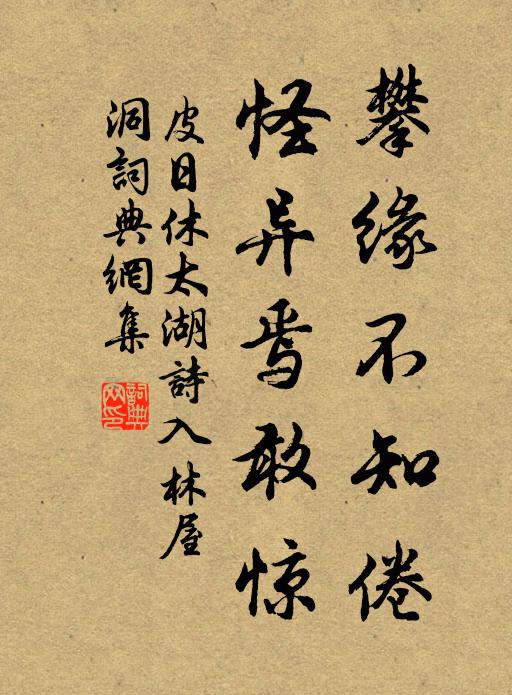 攀缘不知倦
怪异焉敢惊
皮日休太湖詩入林屋
洞詞典網集
詞典
网印